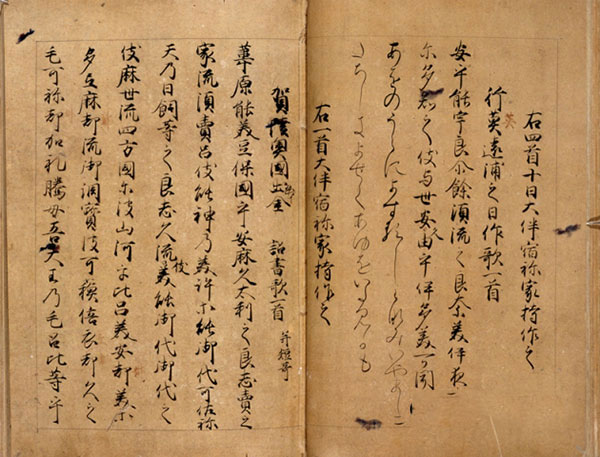 右四首十日大伴宿祢家持作之
行英遠浦之日作歌一首
安乎能宇良尓餘須流之良奈美伊夜
尓多知之伎与世久安由乎伊多美可聞
あをのうらによするしらなみいやましに
たちしきよせくあゆをいたみかも
右一首大伴宿祢家持作之
賀陸奥國出金 詔書歌一首 并短哥
葦原能美豆保國乎安麻久太利之良志賣之
家流須賣呂伎能神乃美許等能御代可佐祢
天乃日嗣等之良志久流伎美能御代御代之
伎麻世流四方國尓波山河乎比呂美安都美等
多弖麻都流御調寶波可蘇倍衣都久之
毛可祢都加礼騰母吾大王乃毛呂比等乎